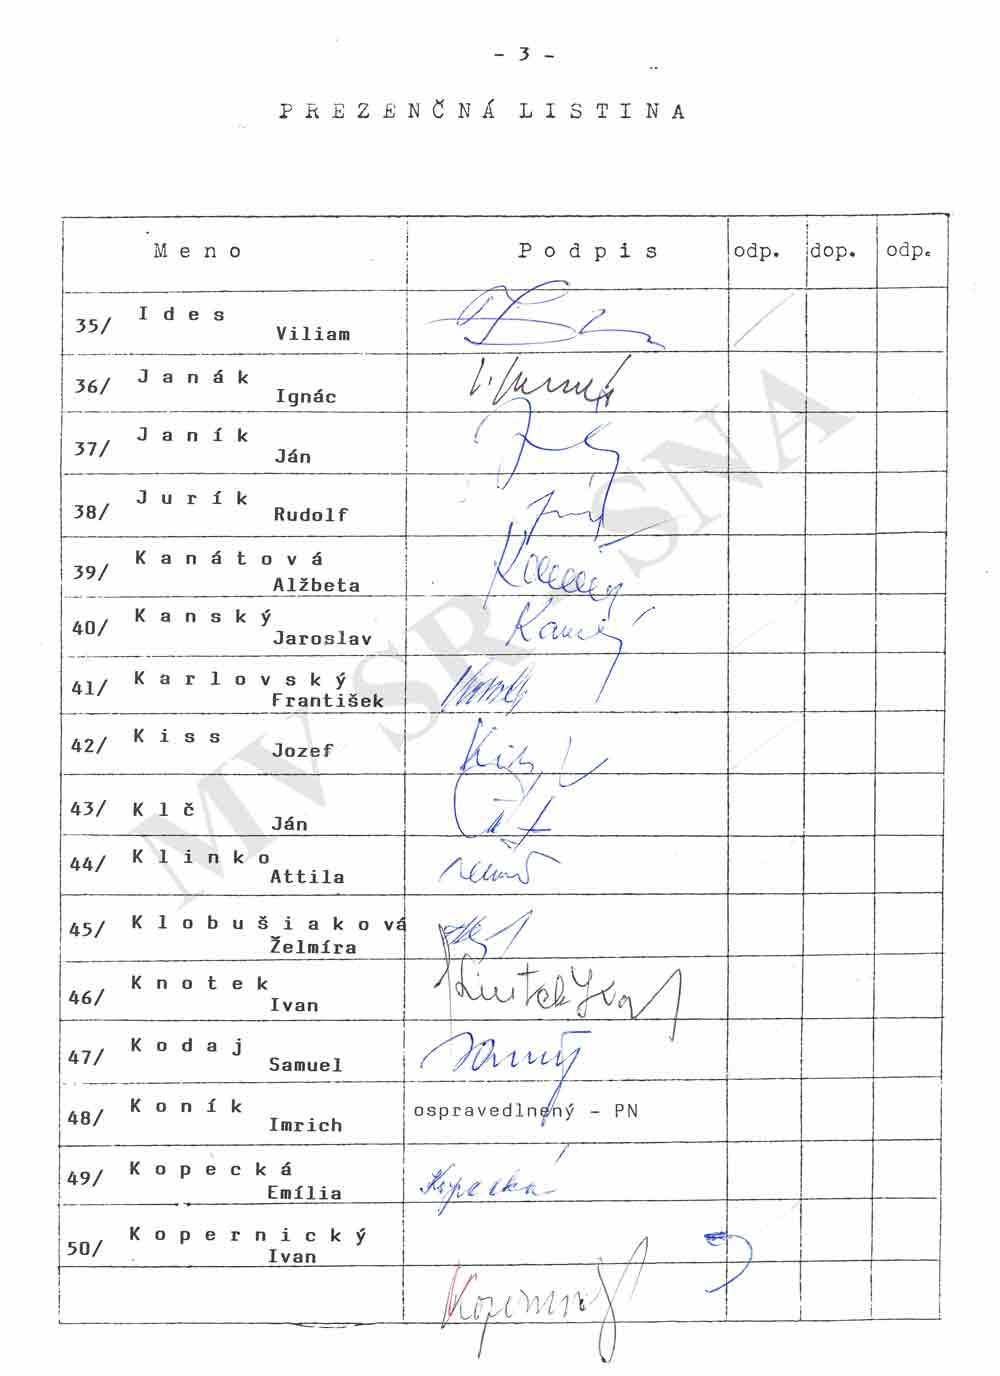 - 3 -
P R E Z E N Č N Á  L I S T I N A
M e n o P o d p i s odp. dop. odp.
35/ I d e s
Viliam
36/ J a n á k
Ignác
37/ J a n í k
Ján
38/ J u r í k
Rudolf
39/ K a n á t o v á
Alžbeta
40/ K a n s k ý
Jaroslav
41/ K a r l o v s k ý
František
42/ K i s s
Jozef
43/ K l č
Ján
44/ K l i n k o
Attila
45/ K l o b u š i a k o vá
Želmíra
46/ K n o t e k
Ivan
47/ K o d a j
Samuel
48/ K o n í k ospravedlnený - PN
Imrich
49/ K o p e c k á
Emília Kopecká
50/ K o p e r n i c k ý
Ivan
MV SR SNA